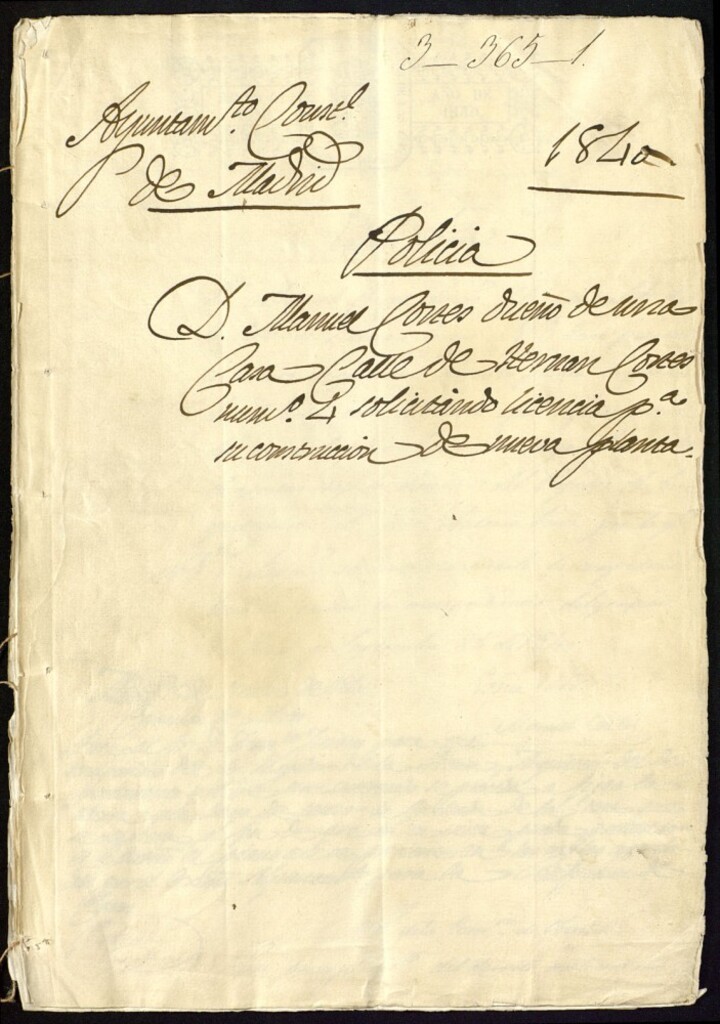 3-365-1.
Ayuntam.to Const.l
de Madrid
1840.
Policia
D. Manuel Cortes dueño de una
Casa Calle de Hernan Cortes
num.o 4 solicitando licencia p.a
su construccion de nueva planta.